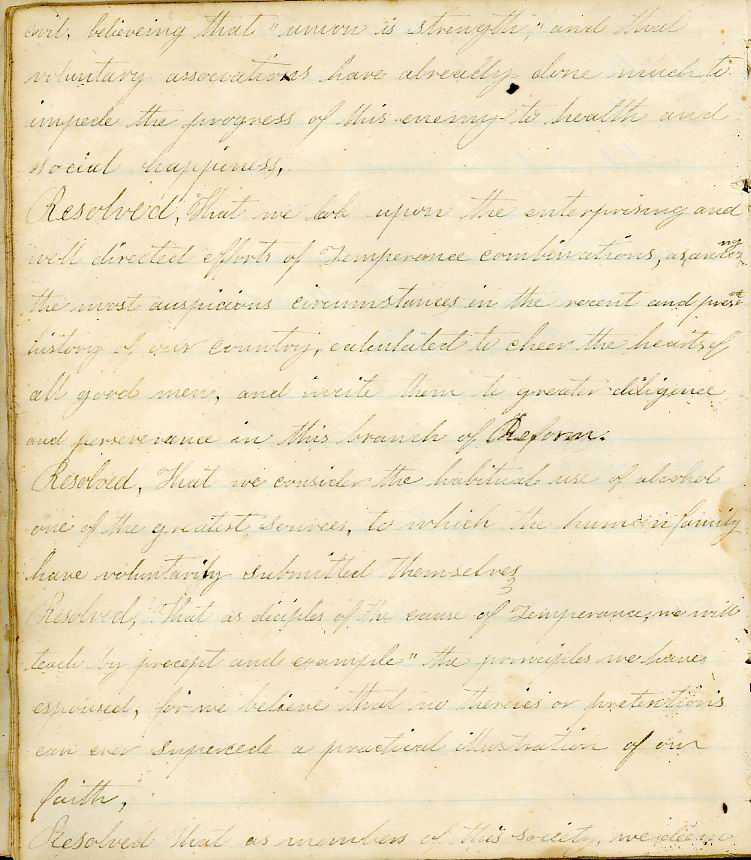 evil, believeing that "union is strength," and that
voluntary associations have already done much to
impede the progress of this enemy to health and
social happiness.
Resolved, That we look upon the enterprising and
well directed efforts of Temperance combinations, as among
the most auspicious circumstances in the recent and presnt
history of our country, calculated to cheer the hearts of
all good men, and incite them to greater diligence
and perseverance in this branch of Reform.
Resolved, That we consider the habitual use of alcohol
one of the greatest sources, to which the human family
have voluntarily submitted themselves
Resolved, That as diciples of the cause of Temperance, we will
teach "by precept and example" the principles we have
espoused, for we believe that no theries or pretentions
can ever supercede a practical illustration of our
faith,
Resolved That as members of this society, we deem